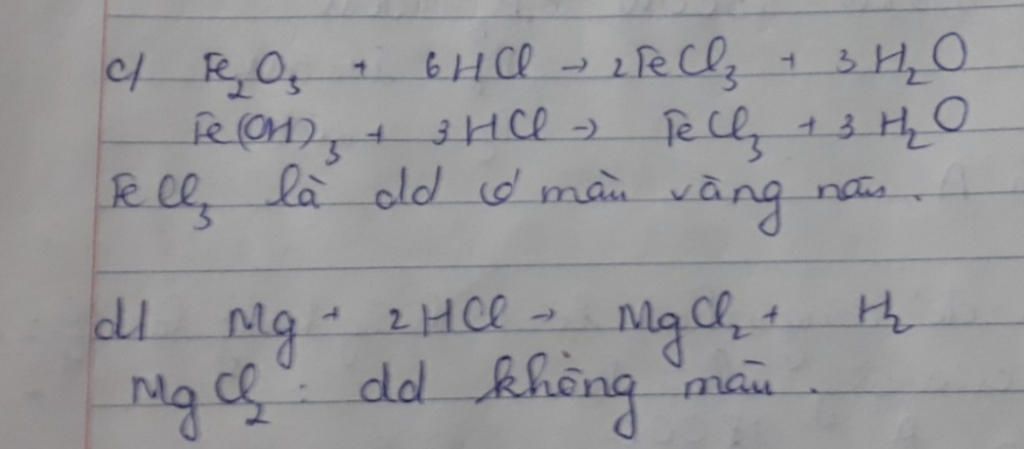 c/ Fe₂O₃ + 6HCl → 2FeCl₃ + 3H₂O
Fe(OH)₃ + 3HCl → FeCl₃ + 3H₂O
FeCl₃ là dd có màu vàng nâu.
d/ Mg + 2HCl → MgCl₂ + H₂
MgCl₂ : dd không màu.